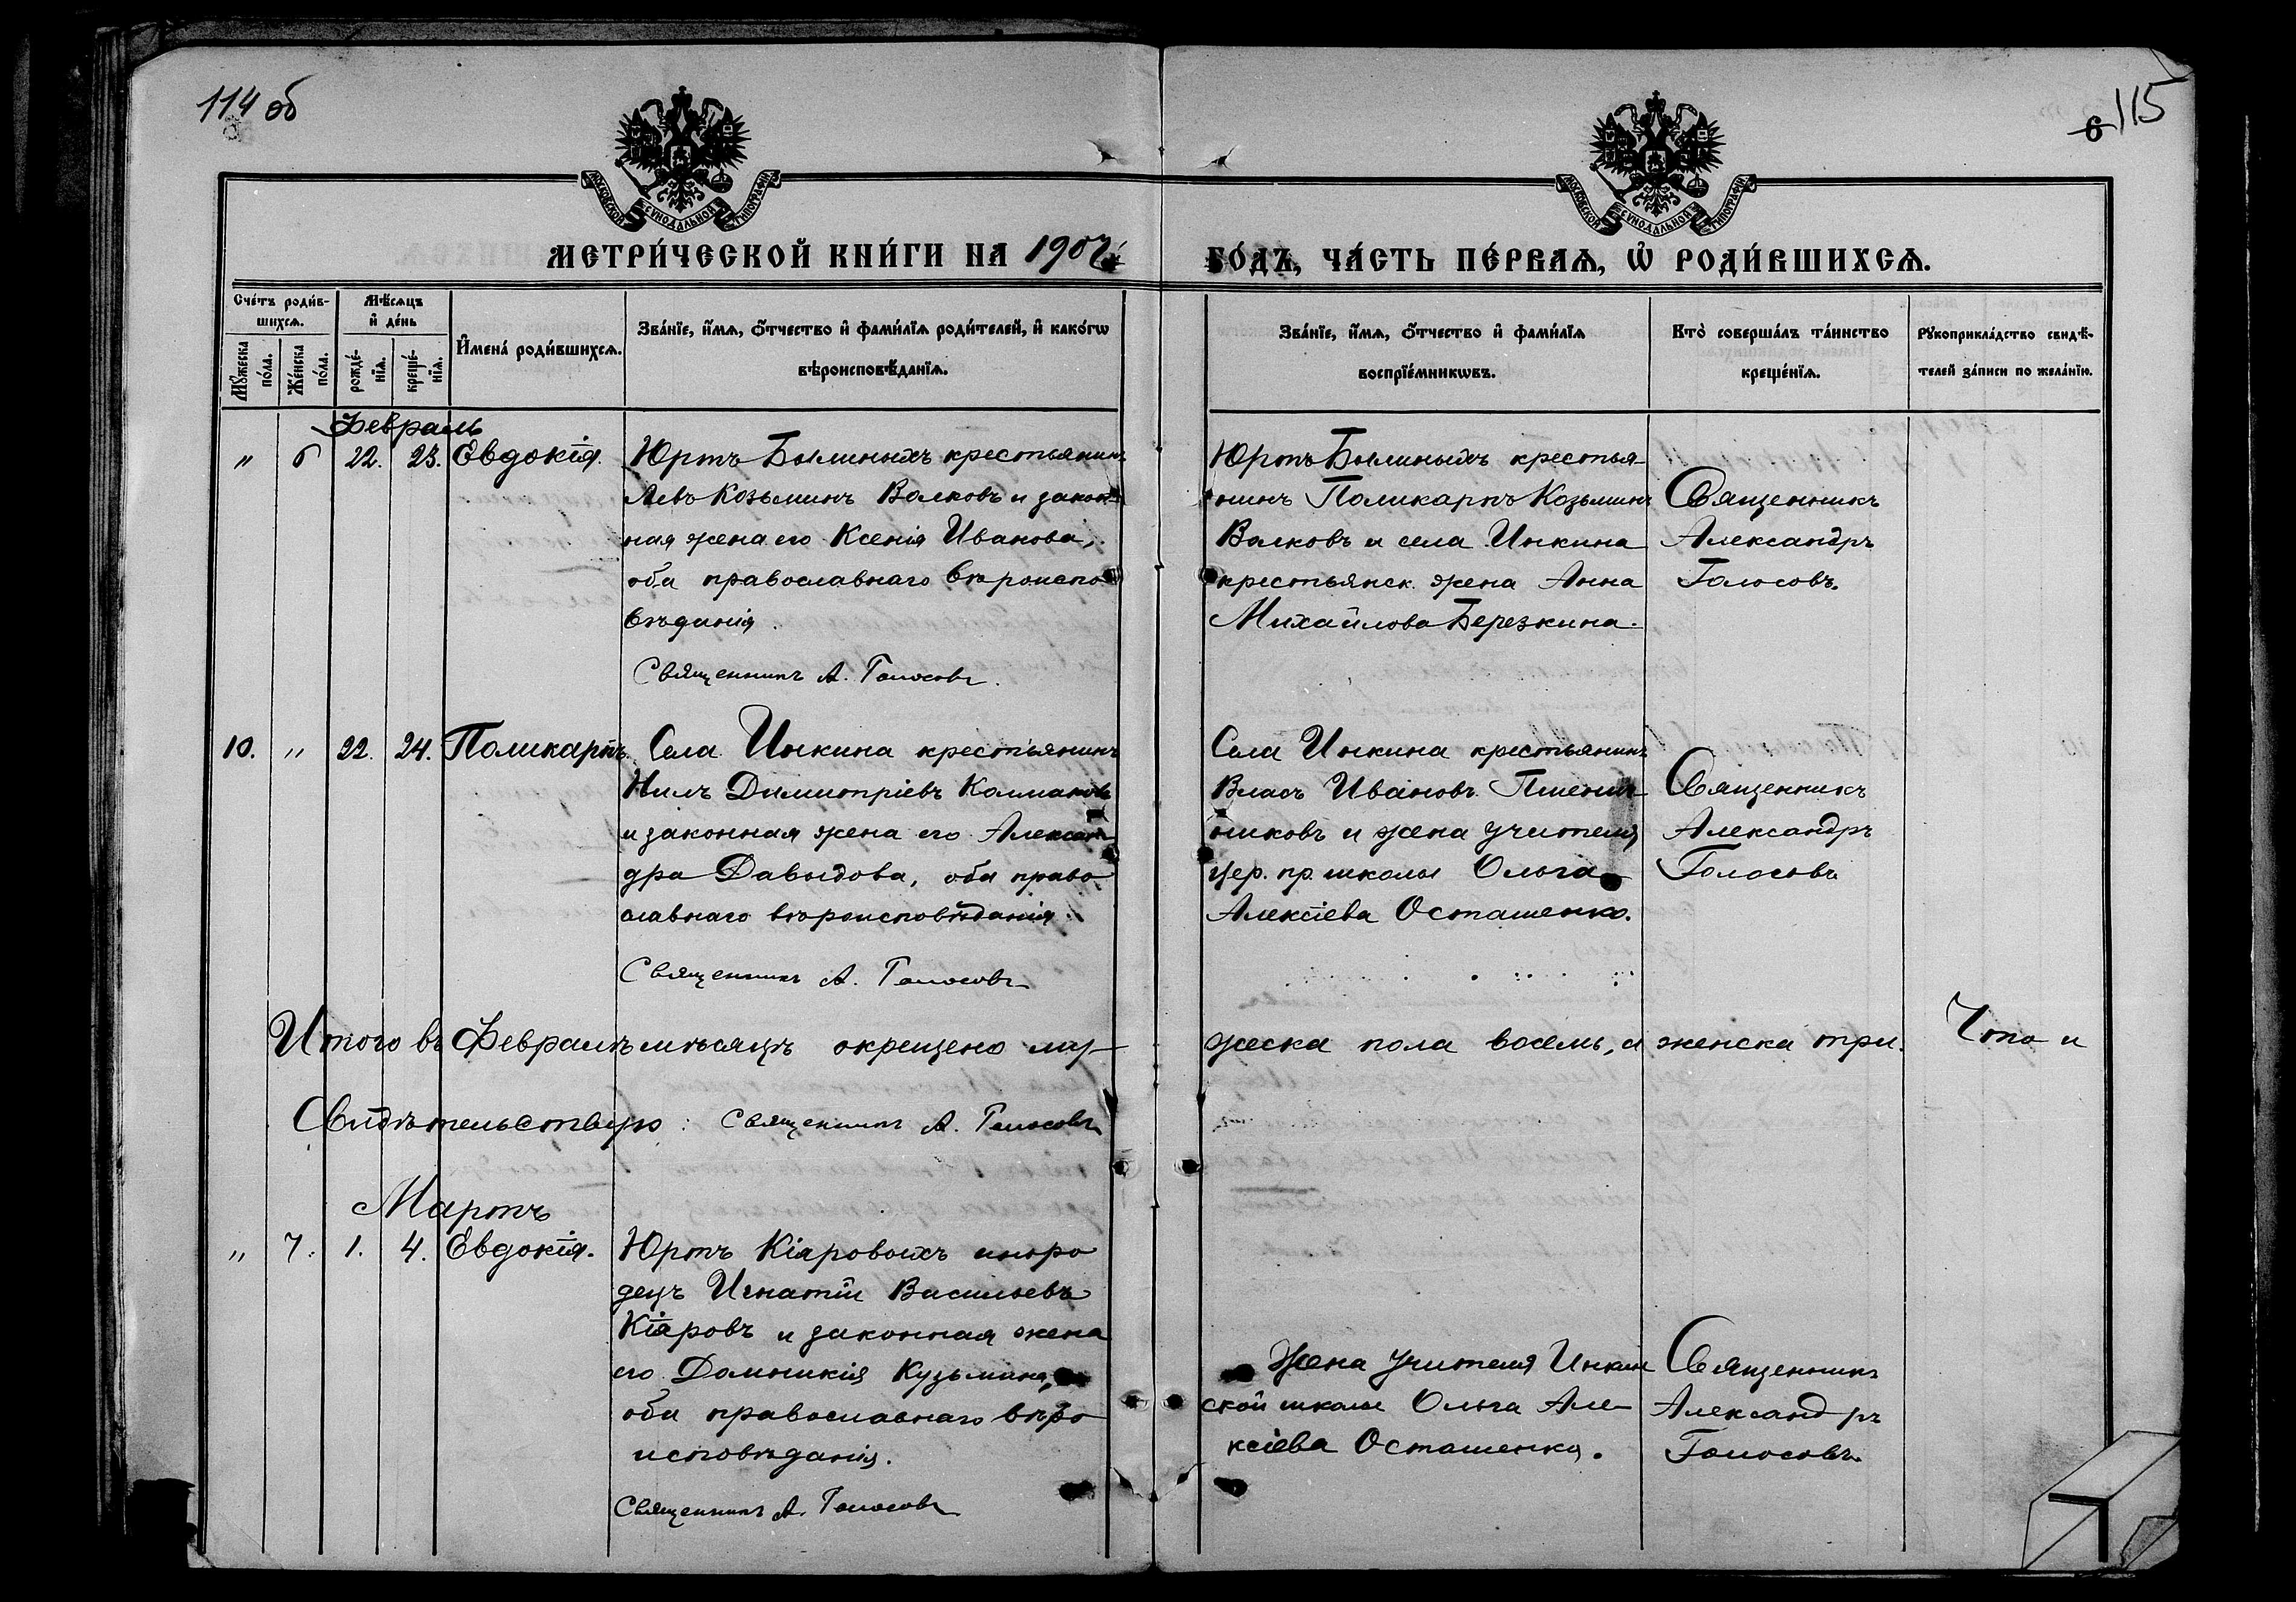 114 об
6 115
МОСКОВСКОЙ СѴНОДАЛЬНОЙ ТИПОГРАФІИ
МОСКОВСКОЙ СѴНОДАЛЬНОЙ ТИПОГРАФІИ
МЕТРИ́ЧЕСКОЙ КНИ́ГИ НА 1902
ГО́ДЪ, ЧА́СТЬ ПЕ́РВАѦ, Ѡ҆ РОДИ́ВШИХСѦ.
Сче́тъ роди́в-
шихсѧ.
Мꙋ́жеска
по́ла.
Же́нска
по́ла.
Мѣ́сѧцъ
и҆ де́нь
рожде́-
нїѧ.
креще́-
нїѧ.
И҆мена́ роди́вшихсѧ.
Зва́нїе, и҆́мѧ, ѻ҆́тчество и҆ фами́лїѧ роди́телей, и҆ како́гѡ
вѣроисповѣ́данїѧ.
Зва́нїе, и҆́мѧ, ѻ҆́тчество и҆ фами́лїѧ
воспрїе́мникѡвъ.
Кто̀ соверша́лъ та́инство
креще́нїѧ.
Рꙋкоприкла́дство свидѣ́-
телей за́писи по жела́нїю.
Февраль
" 6 22. 23. Евдокія.
Юртъ Былиныхъ крестьянинъ
Левъ Козьминъ Волковъ и закон-
ная жена его Ксенія Иванова,
оба православнаго вѣроиспо-
вѣданія.
Священникъ А. Голосовъ.
Юртъ Былиныхъ крестья-
нинъ Поликарпъ Козьминъ
Волковъ и села Инкина
крестьянск. жена Анна
Михайлова Березкина.
Священникъ
Александръ
Голосовъ.
10. " 22. 24. Поликарпъ.
Села Инкина крестьянинъ
Нилъ Димитріевъ Колмаковъ
и законная жена его Алексан-
дра Давыдова, оба право-
славнаго вѣроисповѣданія.
Священникъ А. Голосовъ
Села Инкина крестьянинъ
Власъ Ивановъ Пшенич-
никовъ и жена учителя
цер. пр. школы Ольга
Алексіева Осташенко.
Священникъ
Александръ
Голосовъ
Итого въ Февралѣ мѣсяцѣ окрещено му-
жеска пола восемь, а женска три. Что и
Свидѣтельствую: Священникъ А. Голосовъ
Мартъ
" 7. 1. 4. Евдокія.
Юртъ Кіяровыхъ иноро-
децъ Игнатій Васильевъ
Кіяровъ и законная жена
его Домникія Кузьмина,
оба православнаго вѣро-
исповѣданія.
Священникъ А. Голосовъ
Жена учителя Инкин-
ской школы Ольга Але-
ксіева Осташенко.
Священникъ
Александръ
Голосовъ.